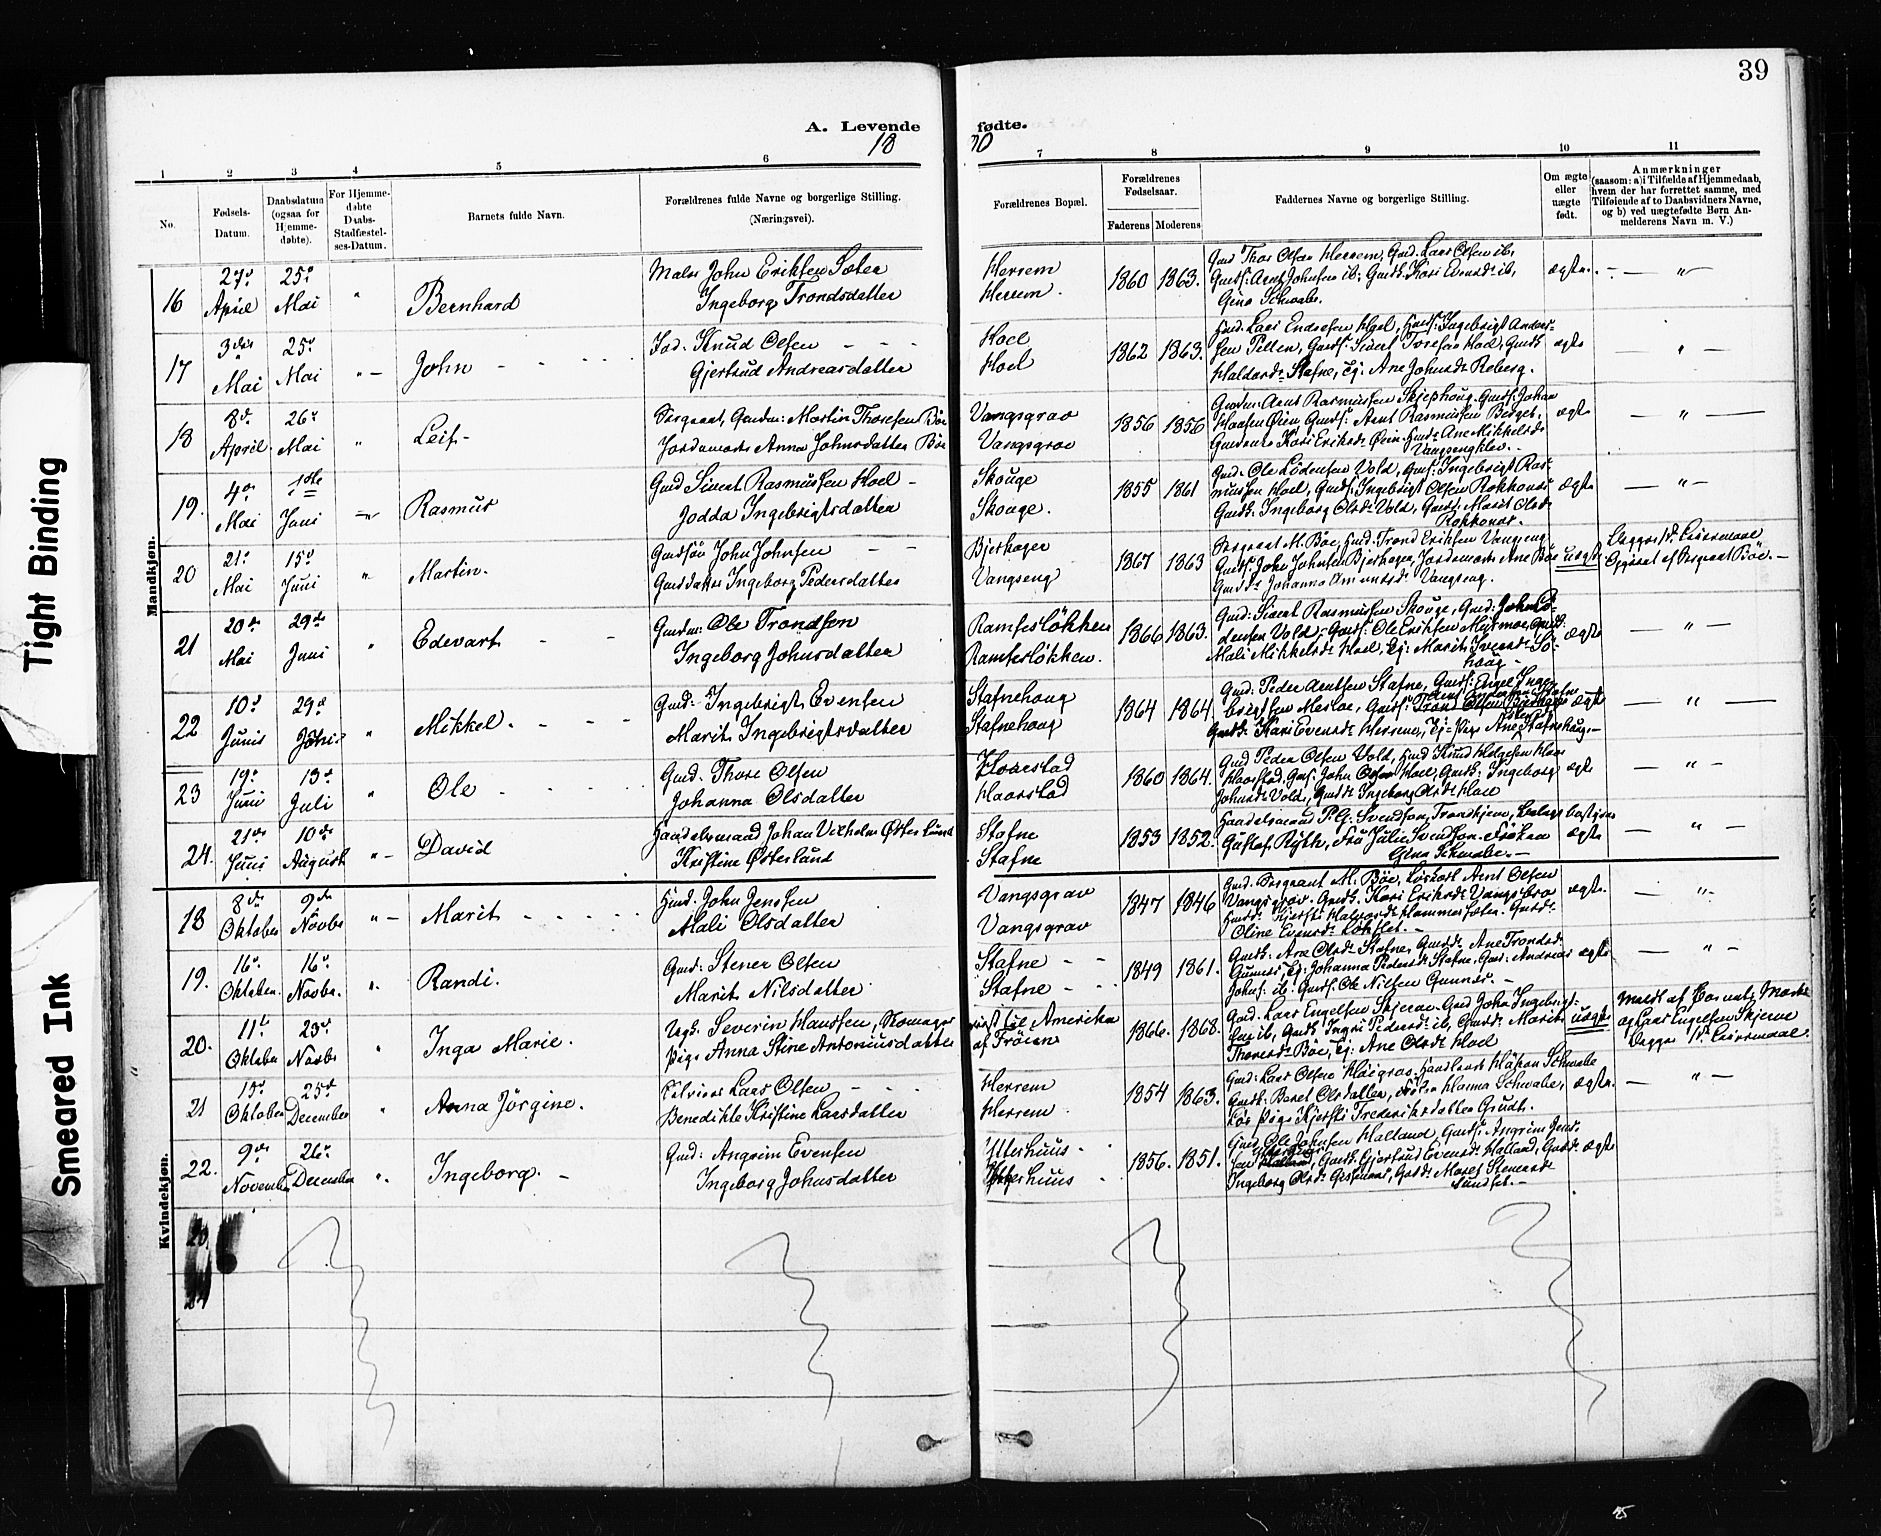 39
A. Levende fødte.
18 90
1 2 3 4 5 6 7 8 9 10 11
No.
Fødsels-Datum.
Daabsdatum (ogsaa for Hjemmedøbte).
For Hjemmedøbte Daabs-Stadfæstelses-Datum.
Barnets fulde Navn.
Forældrenes fulde Navne og borgerlige Stilling. (Næringsvei).
Forældrenes Bopæl.
Forældrenes Fødselsaar.
Faderens Moderens
Faddernes Navne og borgerlige Stilling.
Om ægte eller uægte født.
Anmærkninger
(saasom: a) i Tilfælde af Hjemmedaab,
hvem der har forrettet samme, med
Tilføiende af to Daabsvidners Navne,
og b) ved uægtefødte Børn Anmelderens Navn m. V.)
Mandkjøn.
16 27de April 25de Mai " Bernhard
Maler John Eriksen Sæter
Ingeborg Trondsdatter
Herrem
Herrem.
1860 1863.
Gmd Thor Olsen Herrem, Gmd. Lars Olsen ib,
Gmds: Arnt Johnsen ib, Gmdk. Kari Evensdt ib,
Gina Schwabe.
ægte. — " —
17 3die Mai 25de Mai " — John
Knud Olsen
Gjertrud Andreasdatter
Hoel
Hoel
1862 1863.
Hmd. Lars Endresen Hoel, Gmds: Ingebrigt Andersen
Gmds: Sivert Hoel, Gmdk
Stafne, Pj: Ane Johnsdt Reberg.
ægte — " —
18 8de April 26de Mai " Leif
Sergeant, Gmdm: Martin Thoresen Böe
Jordemoder Anna Johnsdatter Böe
Vangsgrav
Vangsgrav
1856 1856
Gmdm: Arnt Rasmussen Skjephoug, Gmds: Johan
Haasen Öien, Gmds: Arnt Rasmussen Berget,
Kari Eriksdt Öien, Ane Mikkelsdt
ægte — " —
19. 4de Mai 1ste Juni — " Rasmus
Gmd Sivert Rasmussen Hoel
Jodda Ingebrigtsdatter
Skouge
Skouge.
1855 1861
Gmd. Ole Lödensen Vold, Gmds: Ingebrigt Rasmussen
Hoel, Gmds: Ingebrigt Olsen Rokkones
Gmdk. Ingeborg Olsdt Vold, Gmdd: Marit Olsdt
Rokkones.
ægte — " —
20 21de Mai 15de Juni " Martin.
Gmdsön John Johnsen
Gmddatter Ingeborg Pedersdatter
Bjerkager
Vangseng
1867 1863
Sergeant M. Böe, Hmd. Trond Eriksen Vangseng
Gmds: John Johnsen Bjerkager, Jordemoder Ane Böe
Gmdd. Johanna Amundsdt Vangseng.
uægte
Begges 1ste Leiermaal
Opgivet af Sergeant Böe. —
21 20de Mai 29de Juni " Edevart
Gmdm: Ole Trondsen
Ingeborg Johnsdatter
Ramsesløkken
Ramsesløkken.
1866 1863.
Gmd: Sivert Rasmussen Skouge, Gmd: John Lödensen
Vold, Gmds: Ole Eriksen
Mali Mikkelsdt Hoel, Pj: Marit
ægte — " —
22 10de Junis 29de Junis " Mikkel.
Gmd. Ingebrigt Evensen
Marit Ingebrigtsdatter
Stafnehoug
Stafnehoug
1864 1864.
Gmd: Peder Arntsen Stafne, Gmds: Engel Ingebrigtsen
Mesloe, Gmds:
Gmdk: Kari Evensdt Herrem, Pige Ane Stafnehaug. —
ægte — " —
23 19de Juni 13de Juli " Ole
Gmd. Thore Olsen
Johanna Olsdatter
Haarstad
Haarstad
1860 1864.
Gmd Peder Olsen Vold, Hmd Knud Helgesen
Haarstad, Gmds: John Olsen Hoel, Gmdk: Ingeborg
Johnsdt Vold, Gmdd: Ingeborg Olsdt Hoel
ægte — " —
24. 21de Juni 10de August " — David
Handelsmand Johan Vilhelm Østerlund
Kristine Østerlund
Stafne
Stafne
1853 1852.
Handelsmand P. G. Svendson, Trondhjem,
Gustaf Ryth, Fru Julie Svendson, Fröken
Gina Schwabe. —
ægte — " —
Kvindekjøn.
18 8de Oktober 9de Novbr " — Marit
Hmd. John Jenssen
Mali Olsdatter
Vangsgrav
Vangsgrav
1847 1846
Gmd. Sergeant M. Böe, Löskarl Arnt Olsen
Vangsgrav, Gmdk. Kari Eriksdt Vangsbro
Hammersæter, Gmdd.
Oline Evensdt
ægte. — " —
19. 16de Oktober. 16de Novbr. " Randi.
Gmd: Stener Olsen
Marit Nilsdatter
Stafne
Stafne
1849 1861.
Gmdk: Ane Olsdt Stafne, Gmdd. Ane Trondsd.
Gunnes, Pj: Johanna Pedersdt Stafne, Gmd: Andreas
Johns. ib. Gmds: Ole Nilsen Gunnes. —
ægte — " —
20. 11te Oktober 23de Novbr " Inga Marie.
Ugk. Severin Hansen, Komager
Pige Anna Stine Antoniusdatter
reist til Amerika
af Fröien
1866. 1868.
Gmd. Lars Engelsen Skjerve, Gmd John Ingebrigtsen
ib, Gmdk Ingri Pedersdt ib, Gmdd: Marit
Thoresdt Böe, Pj: Ane Olsdt Hoel
uægte
Meldt af Barnets Moder
og Lars Engelsen Skjerve
Begges 1ste Leiermaal.
21 15de Oktober 25de December " Anna Jörgine.
Lars Olsen
Benedikte Kristine Larsdatter
Herrem
Herrem
1854 1863.
Gmd: Lars Olsen Haagraf, Handlende Håkon Schwabe
Gmdk: Beret Olsdatter, Fröken Hanna Schwabe,
Lös Pige Kjersti Frederiksdatter Grudt.
ægte. — " —
22. 9de November 26de December " Ingeborg.
Gmd: Angrim Evensen
Ingeborg Johnsdatter
Ytterhuus
Ytterhuus
1856. 1851.
Gmd. Ole Johnsen Halland, Gmds: Angrim
Gmdk. Gjertrud Evensdt Halland, Gmdd.
Ingeborg Olsdt Gisnaas, Gmdd: Maret Stenersdt
Sundset. —
ægte
Tight Binding
Smeared Ink